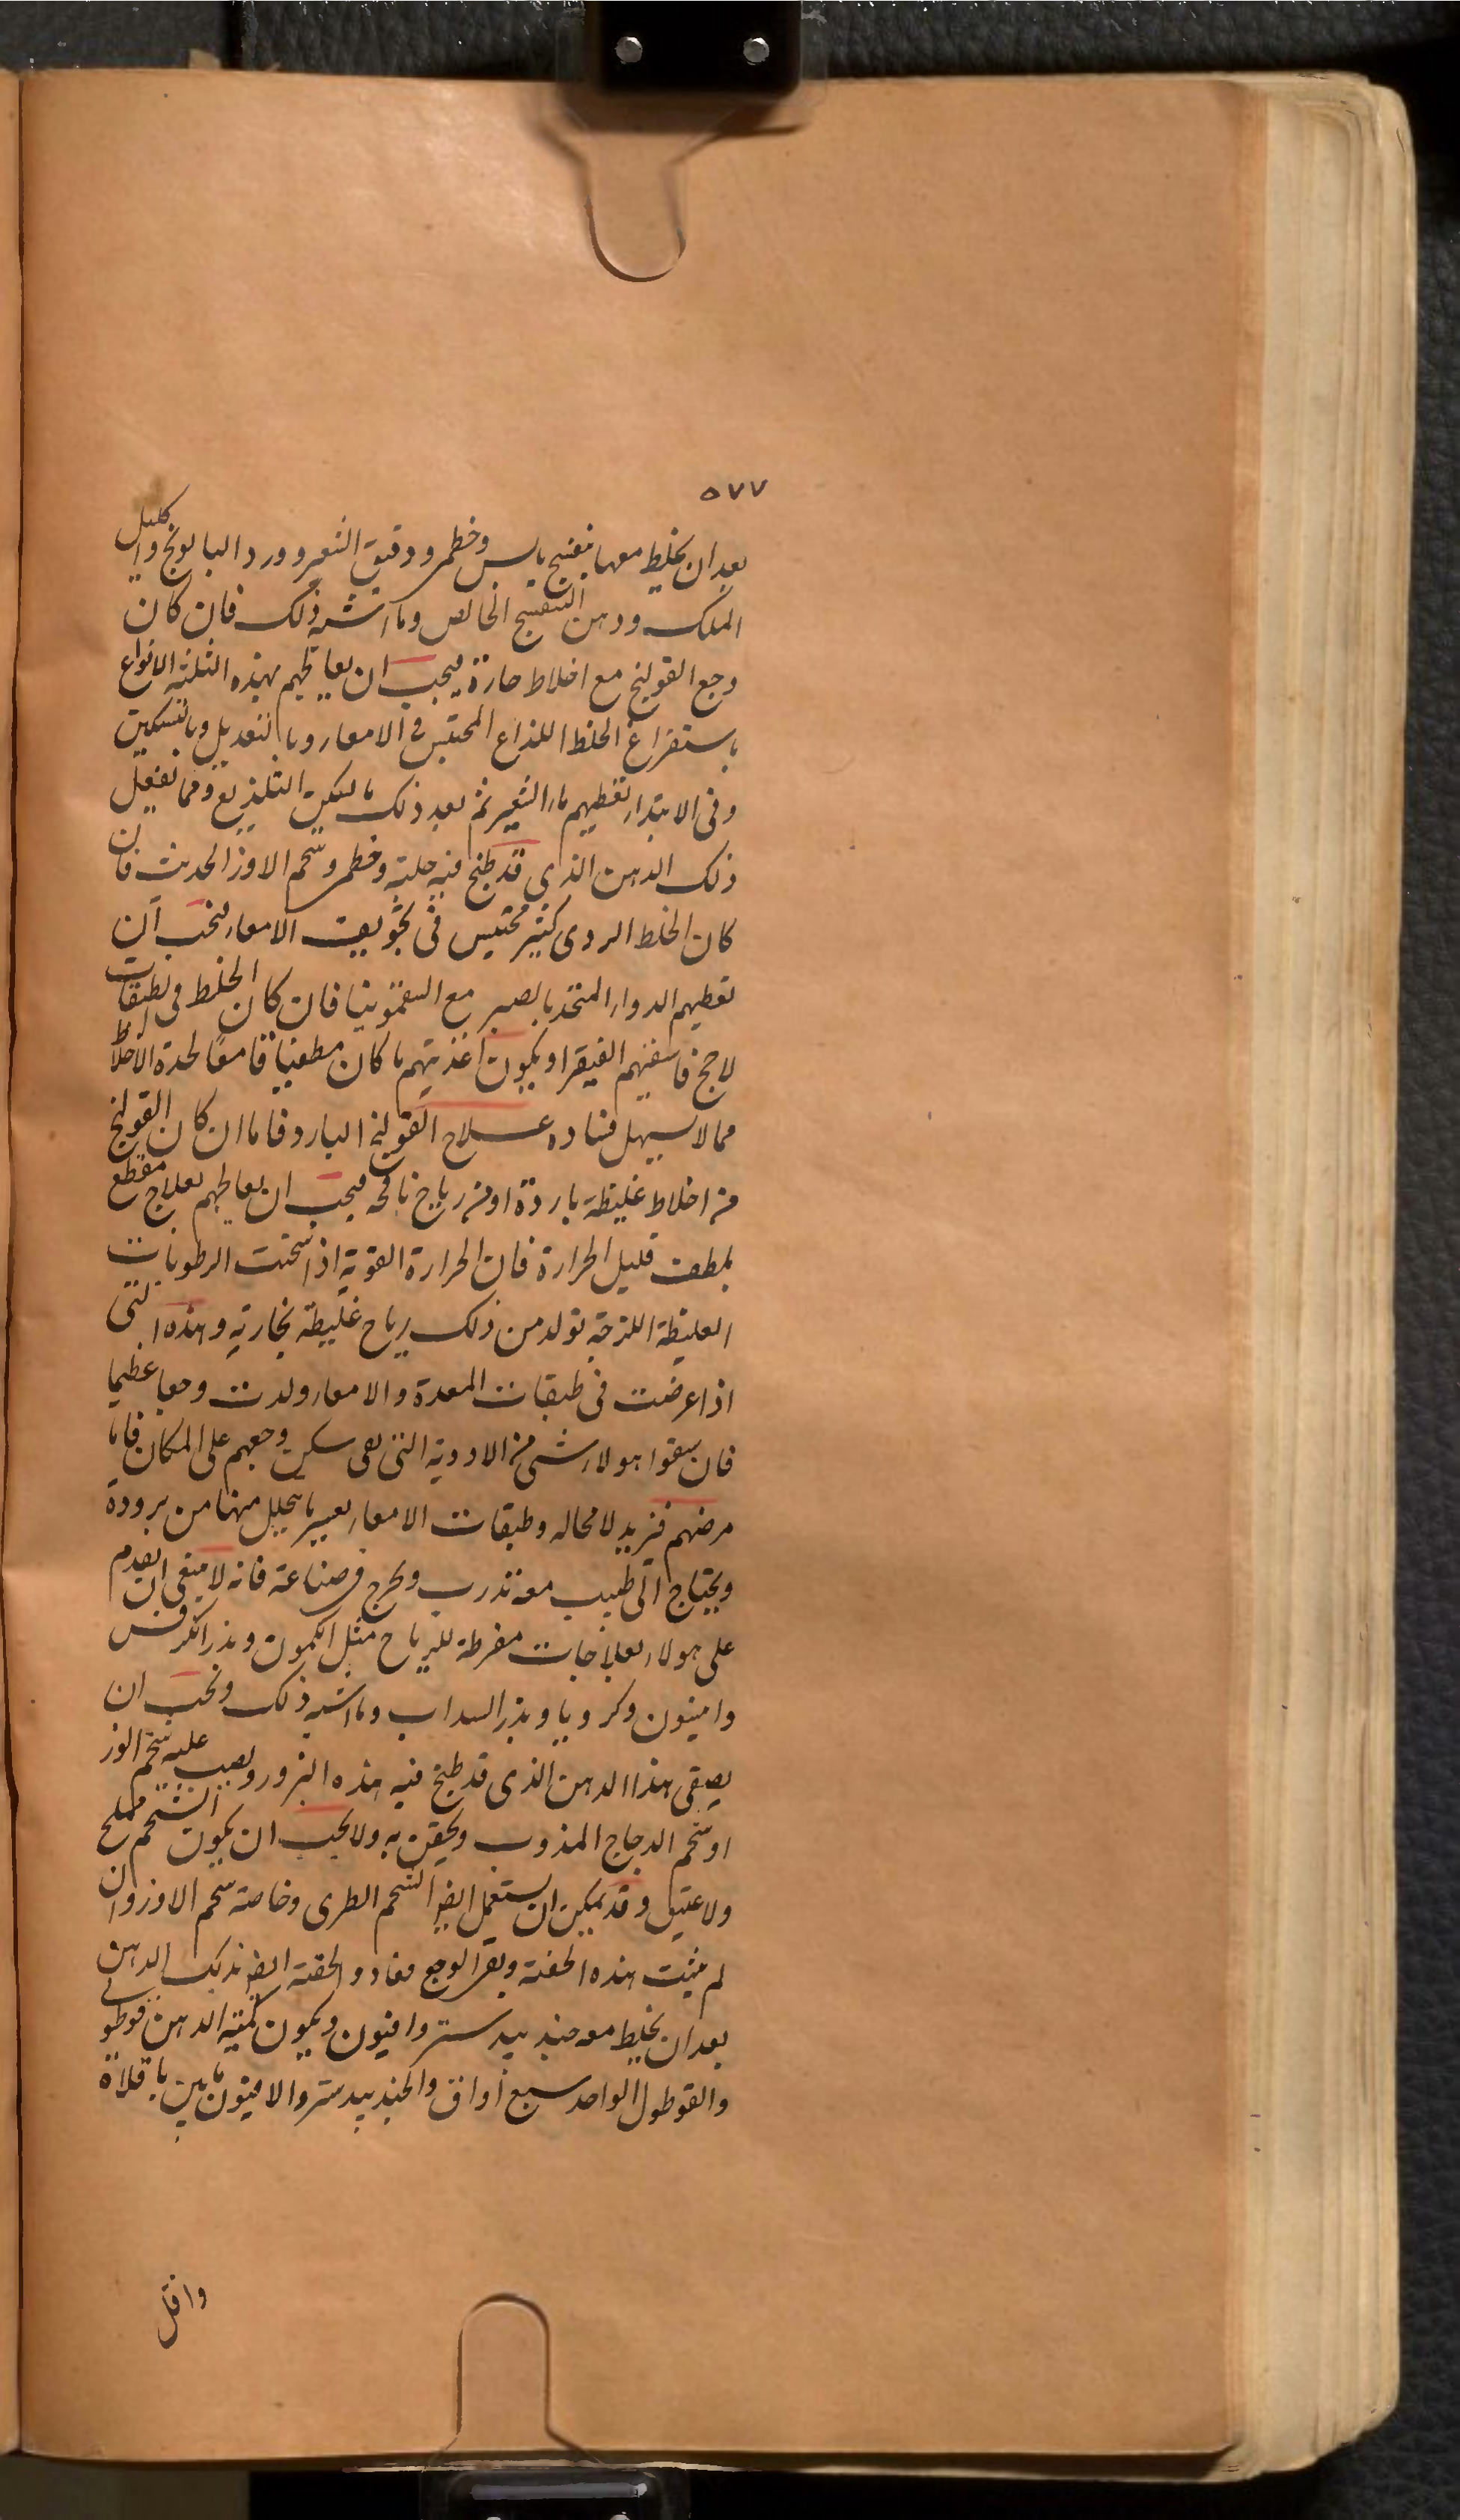 ٥٧٧
بعد ان يخلط معها بنفسج يابس وخطمى ودقيق الشعير وورد البابونج واكليل
الملك ودهن البنفسج الخالص وما اشبه ذلك فان كان
وجع القولنج مع اخلاط حارة فيجب ان يعالجهم بهذه الثلثة الانواع
باستفراغ الخلط اللذاع المحتبس فى الامعاء وبالتعديل وبالتسكين
وفى الابتداء تعطيهم ماء الشعير ثم بعد ذلك ما يسكن التلذيع ومما يفعل
ذلك الدهن الذى قد طبخ فيه حلبة وخطمى وشحم الاوز الحديث فان
كان الخلط الردى كثير محتبس فى تجويف الامعاء فيجب ان
تعطيهم الدواء المتخذ بالصبر مع السقمونيا فان كان الخلط فى الطبقات
لاحج فاسقيهم الفيقرا ويكون اغذيتهم ما كان مطفيا قامعا لحدة الاخلاط
مما لا يسهل فساده علاج القولنج البارد فاما ان كان القولنج
من اخلاط غليظة باردة او من رياح نافخة فيجب ان يعالجهم بعلاج مقطع
ملطف قليل الحرارة فان الحرارة القوية اذا سخنت الرطوبات
الغليظة اللزجة تولد من ذلك رياح غليظة بخارية وهذه التى
اذا عرضت فى طبقات المعدة والامعاء ولدت وجعا عظيما
فان سقوا هولاء شى من الادوية التى سكن وجعهم على المكان فاما
مرضهم فيزيد لا محاله وطبقات الامعاء يعسر ما يتحلل منها من برودة
ويحتاج الى طبيب معه تدرب فى صناعة فانه لا ينبغى ان يقدم
على هولاء بعلاجات مفرطة للرياح مثل الكمون وبذر الكرفس
وانيسون وكرويا وبذر السداب وما اشبه ذلك ويجب ان
يصفى هذا الدهن الذى قد طبخ فيه هذه البزور ويصب عليه شحم الوز
او شحم الدجاج المذوب ويحقن به ولا يجب ان يكون الشحم مملح
ولا عتيق وقد يمكن ان يستعمل ايضا الشحم الطرى وخاصة شحم الاوز وان
لم يثبت هذه الحقنة وبقى الوجع فعاود الحقنة ايضا بذلك الدهن
بعد ان يخلط معه جندبيدستر وافيون ويكون كمية الدهن قوطولى
والقوطول الواحد سبع اواق والجندبيدستر والافيون ما بين باقلاة
واقل